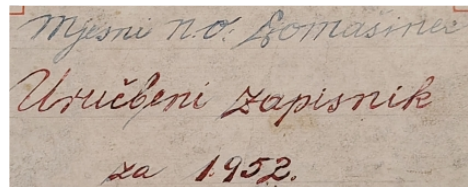 Mjesni n.o. Lomašinec
Uručbeni zapisnik
za 1952.